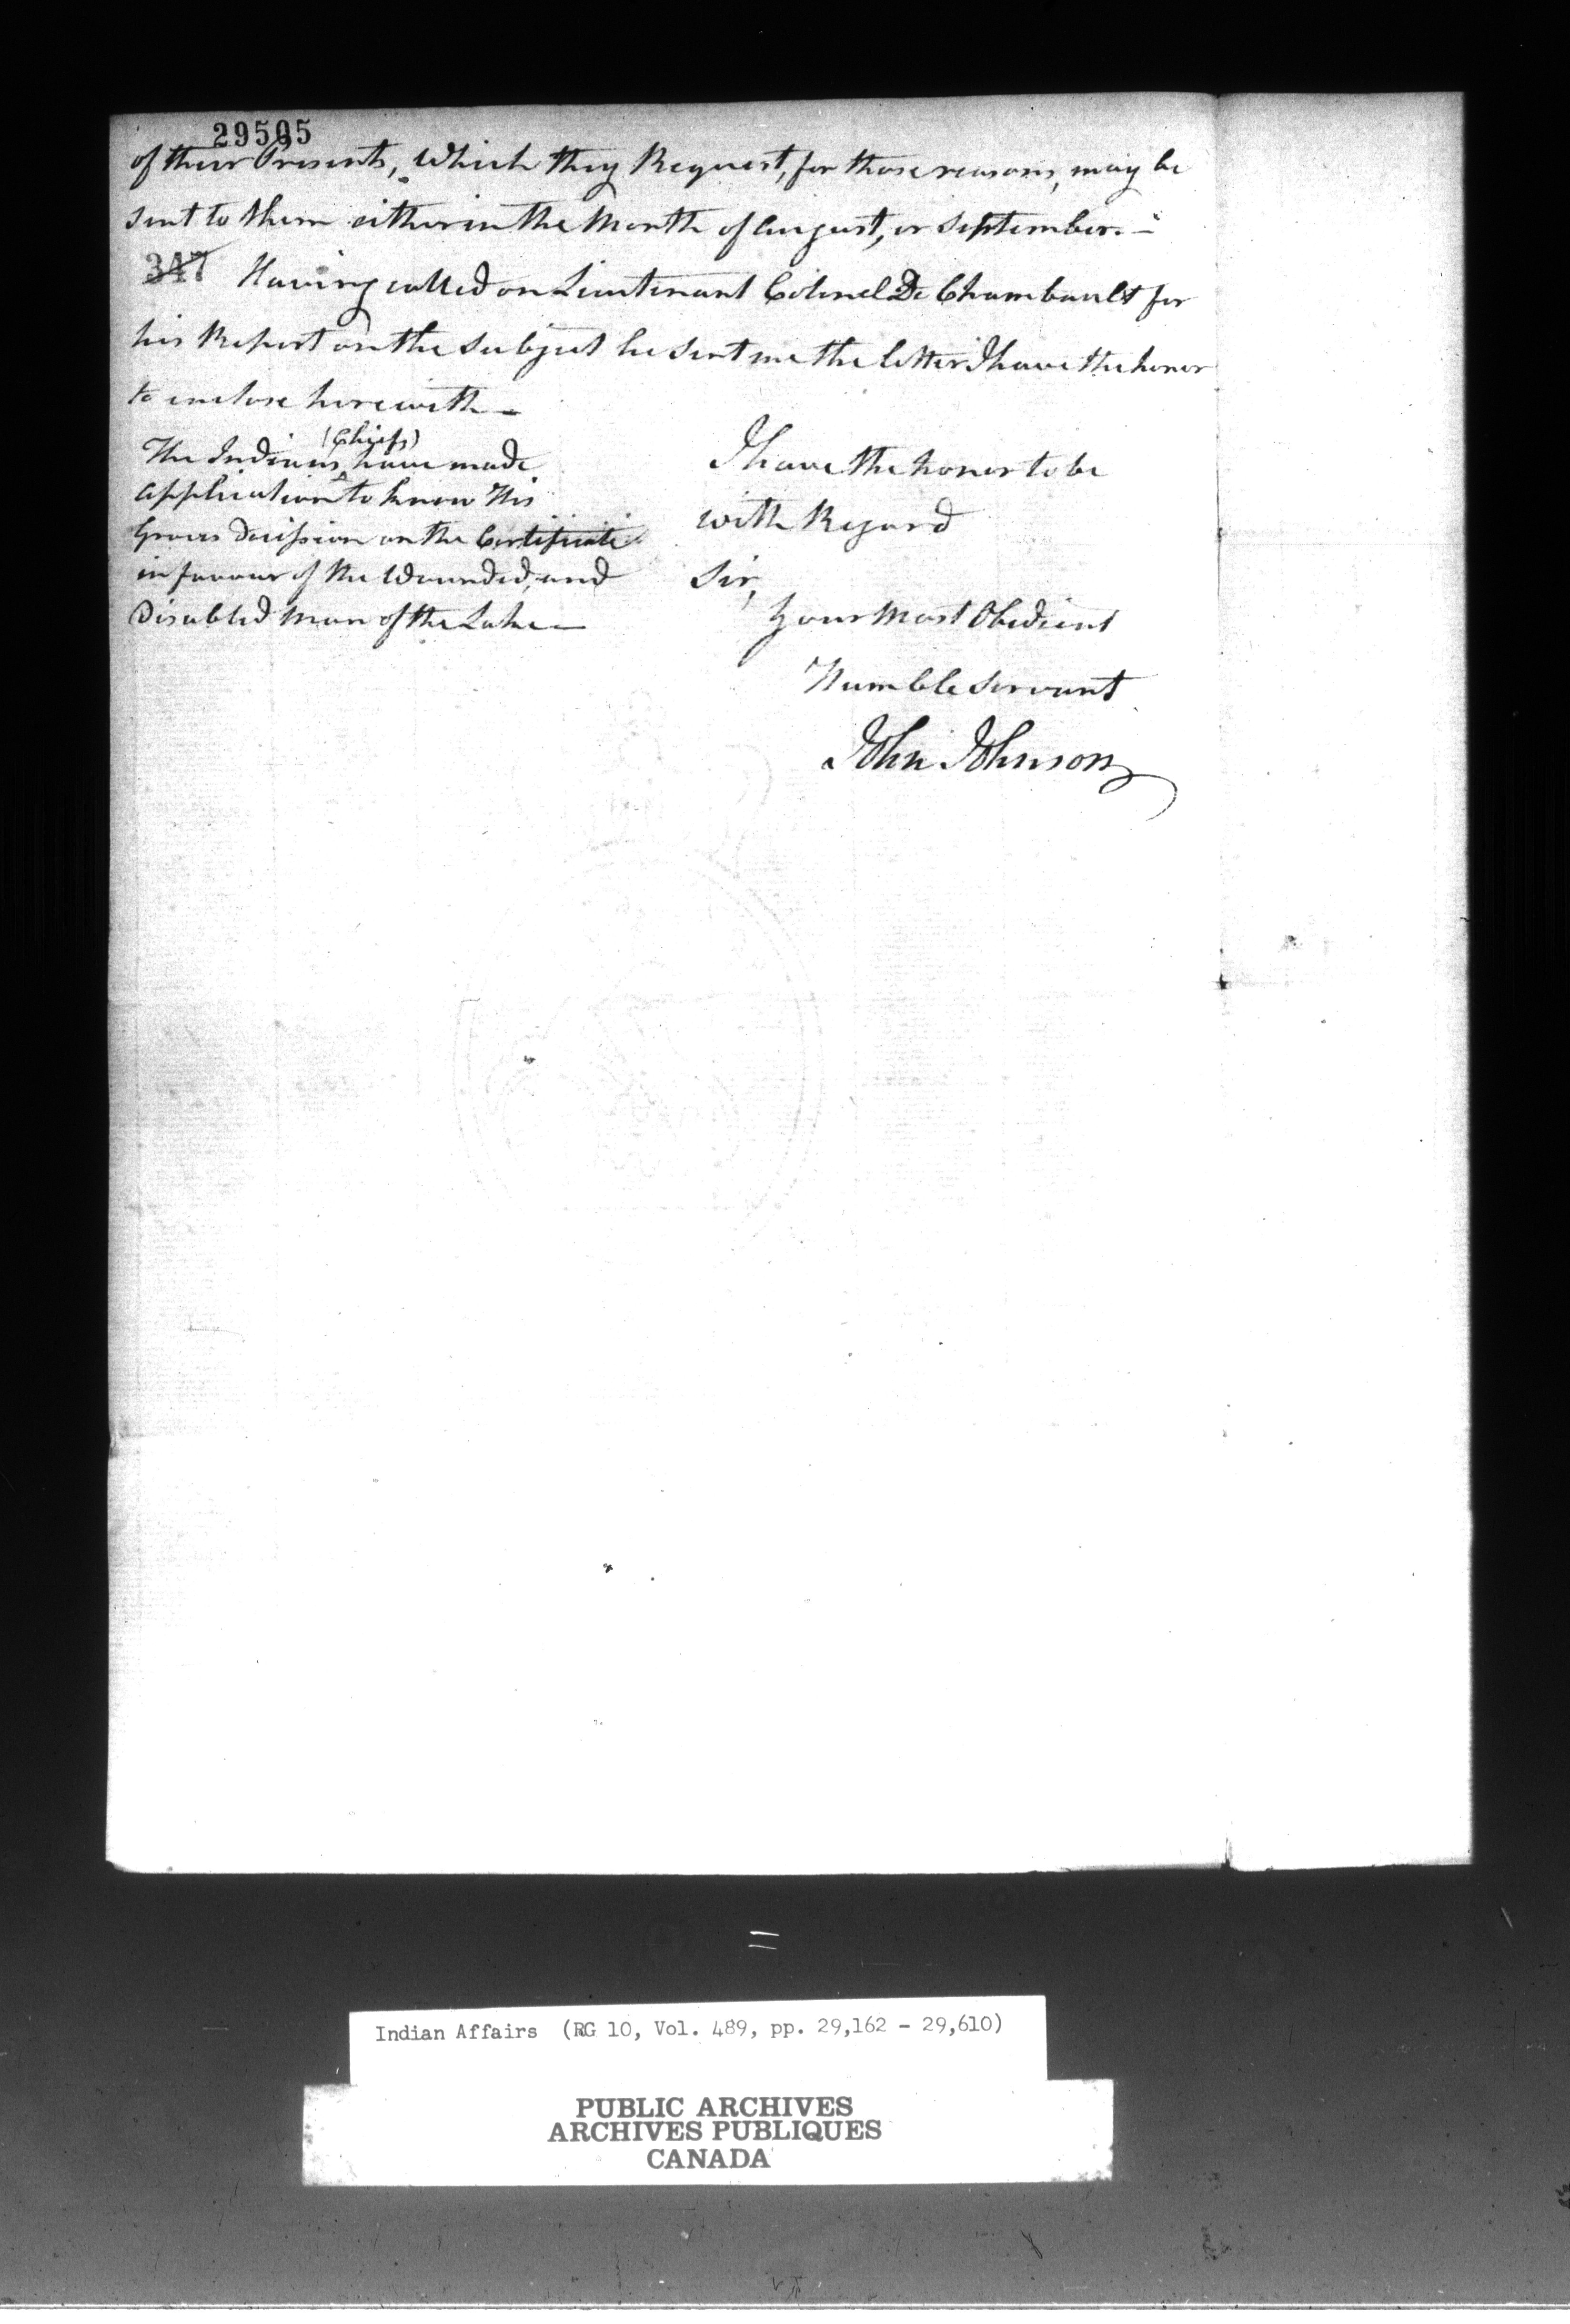 29505
of their Presents, Which they Request, for those reasons, may be
sent to them either in the Month of August, or September. -
347 Having called on Lieutenant Colonel De Chambault for
his Report on the subject he sent me the letter I have the honor
to enclose herewith -
(Chiefs)
The Indians have made
application to know His
Graces Decision on the Certificate
in favour of the Wounded, and
Disabled Men of the Lake -
I have the honor to be
with Regard
Sir,
Your Most Obedient
Humble Servant
John Johnson
Indian Affairs (RG 10, Vol. 489, pp. 29,162 - 29,610)
PUBLIC ARCHIVES
ARCHIVES PUBLIQUES
CANADA